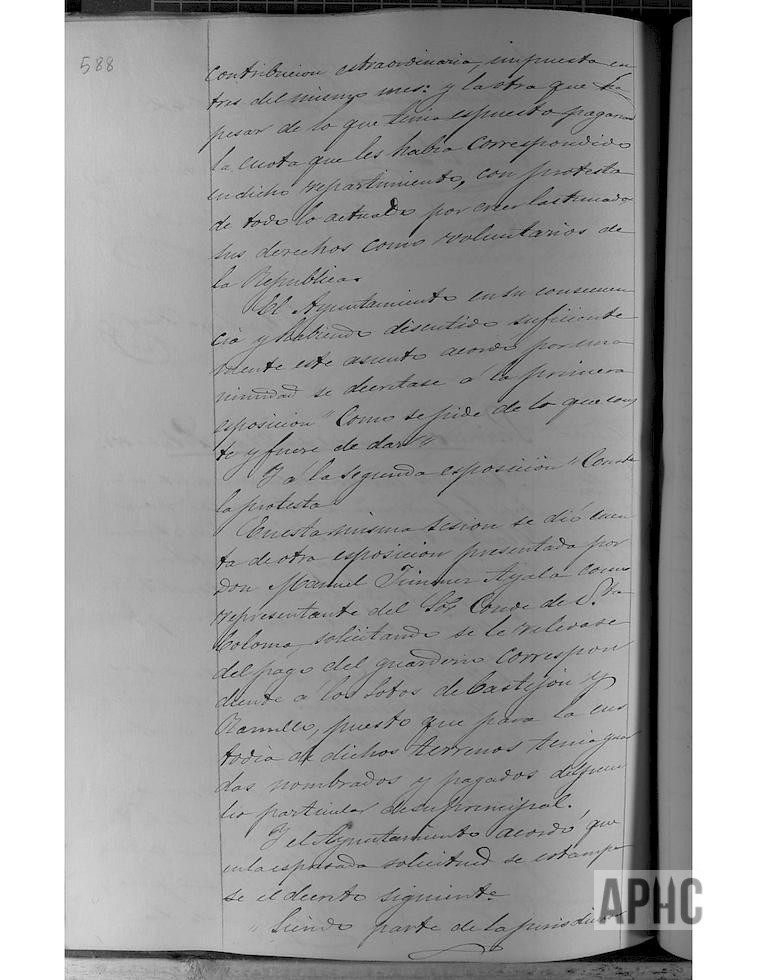 588
contribucion estraordinaria, impuesta en
tres del mismo mes: y la otra que
pesar de lo que tenia espuesto pagarian
la cuota que les habia correspondido
en dicho repartimiento, con protesta
de todo lo actuado por creer lastimados
sus derechos como voluntarios de
la Republica.
El Ayuntamiento en su consecuen
cia y habiendo discutido suficiente
mente este asunto acordó por una
nimidad se decretase á la primera
esposicion "Como se pide de lo que cons
te y fuere de dar"
Y á la segunda esposicion "Conste
la protesta
En esta misma sesion se dió cuen
ta de otra esposicion presentada por
Don Manuel Ayala como
representante del Sor Conde de Sta
Coloma, solicitando se le relevase
del pago del guarderio correspon
diente a los Sotos de Castejon y
Ramillo, puesto que para la cus
todia de dichos terrenos tenia guar
das nombrados y pagados del pecu
lio particular de su principal.
Y el Ayuntamiento acordó que
en la espresada solicitud se estampa
se el decreto siguiente.
"Siendo parte de la jurisdiccion
APHC